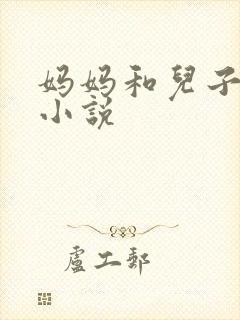 妈妈和兒子
小說
盧工郵